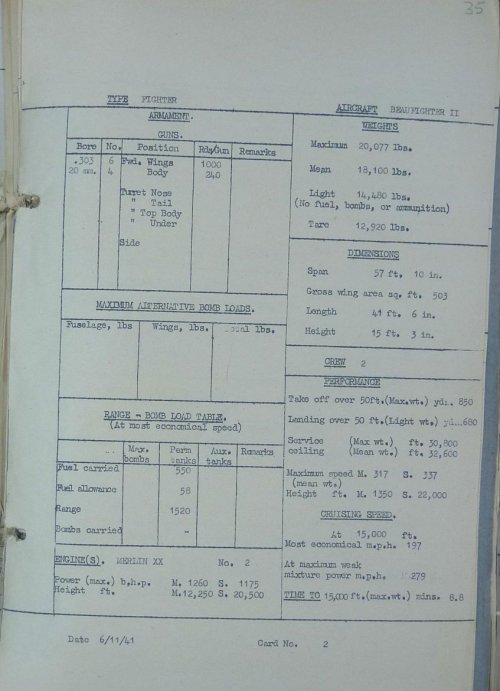 35
TYPE FIGHTER
AIRCRAFT BEAUFIGHTER II
ARMAMENT.
GUNS.
Bore No. Position Rds/Gun Remarks
.303 6 Fwd. Wings 1000
20 mm. 4 Body 240
Turret Nose
" Tail
" Top Body
" Under
Side
MAXIMUM ALTERNATIVE BOMB LOADS.
Fuselage, lbs Wings, lbs. lbs.
RANGE - BOMB LOAD TABLE.
(At most economical speed)
Max. bombs Perm tanks Aux. tanks Remarks
Fuel carried 550
Fuel allowance 58
Range 1520
Bombs carried -
ENGINE(S). MERLIN XX No. 2
Power (max.) b.h.p. M. 1260 S. 1175
Height ft. M.12,250 S. 20,500
WEIGHTS
Maximum 20,077 lbs.
Mean 18,100 lbs.
Light 14,480 lbs.
(No fuel, bombs, or ammunition)
Tare 12,920 lbs.
DIMENSIONS
Span 57 ft. 10 in.
Gross wing area sq. ft. 503
Length 41 ft. 6 in.
Height 15 ft. 3 in.
CREW 2
PERFORMANCE
Take off over 50ft.(Max.wt.) yds. 850
Landing over 50 ft.(Light wt.) yds.680
Service (Max wt.) ft. 30,800
ceiling (Mean wt.) ft. 32,600
Maximum speed M. 317 S. 337
(mean wt.)
Height ft. M. 1350 S. 22,000
CRUISING SPEED.
At 15,000 ft.
Most economical m.p.h. 197
At maximum weak
mixture power m.p.h. 279
TIME TO 15,000 ft.(max.wt.) mins. 8.8
Date 6/11/41 Card No. 2